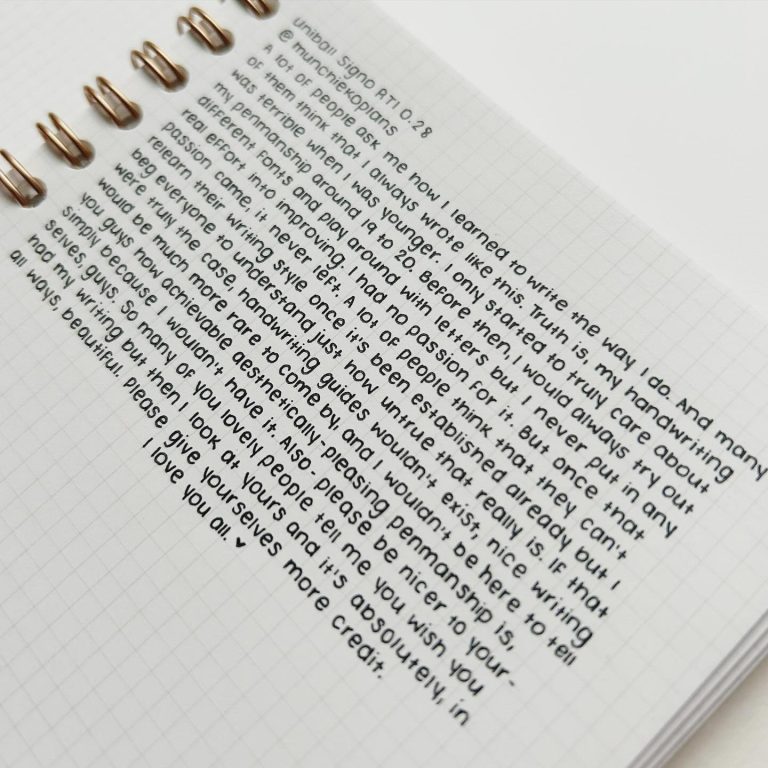 uniball Signo RT1 0.28
@munchiekopians
A lot of people ask me how I learned to write the way I do. And many
of them think that I always wrote like this. Truth is, my handwriting
was terrible when I was younger. I only started to truly care about
my penmanship around 19 to 20. Before then, I would always try out
different fonts and play around with letters but I never put in any
real effort into improving. I had no passion for it. But once that
passion came, it never left. A lot of people think that they can't
relearn their writing style once it's been established already but I
beg everyone to understand just how untrue that really is. If that
were truly the case, handwriting guides wouldn't exist, nice writing
would be much more rare to come by, and I wouldn't be here to tell
you guys how achievable aesthetically-pleasing penmanship is,
simply because I wouldn't have it. Also- please be nicer to your-
selves, guys. So many of you lovely people tell me you wish you
had my writing but then I look at yours and it's absolutely, in
all ways, beautiful. Please give yourselves more credit.
I love you all. ♥